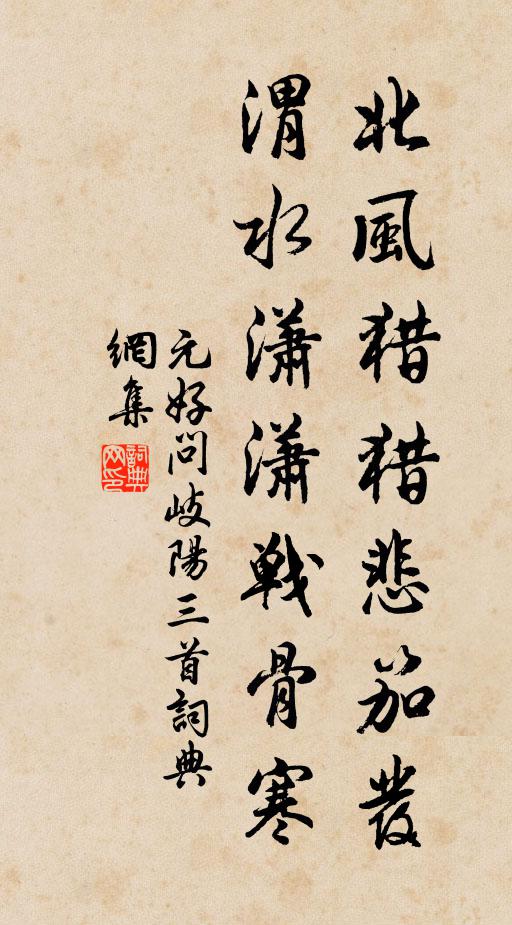 北風猎猎悲笳發
渭水瀟瀟戰骨寒
元好問岐陽三首詞典
網集
詞典網印